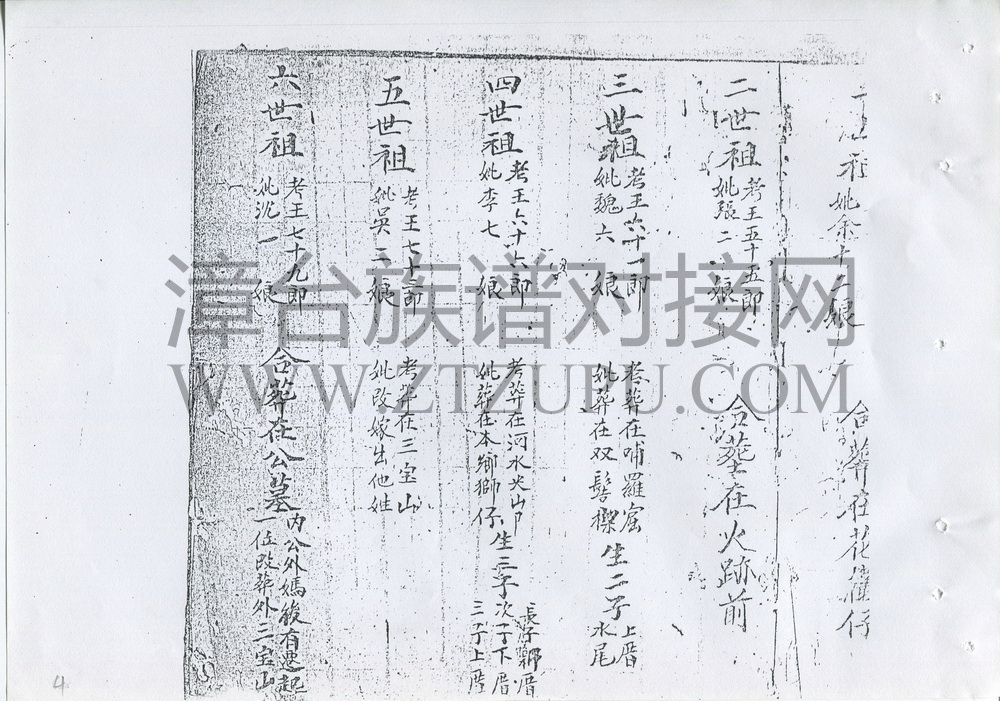 妣余十二娘
合葬在花
二世祖
考王五十五郎
妣張二娘
合塟在火跡前
三世祖
考王六十一郎
妣魏六娘
考葬在哺羅窟
妣葬在双髻檺
生二子
上厝
水尾
四世祖
考王六十六郎
妣李七娘
考葬在河水尖山
妣葬在本鄉獅仔
生三子
長子厝
次丁下厝
三丁上厝
五世祖
考王七十三郎
妣吳二娘
考葬在三宝山
妣改嫁出他姓
六世祖
考王七十九郎
妣沈一娘
合葬在公墓
内公外媽後有起
一位改葬外二宝山
漳台族谱对接网
WWW.ZTZUPU.COM
4